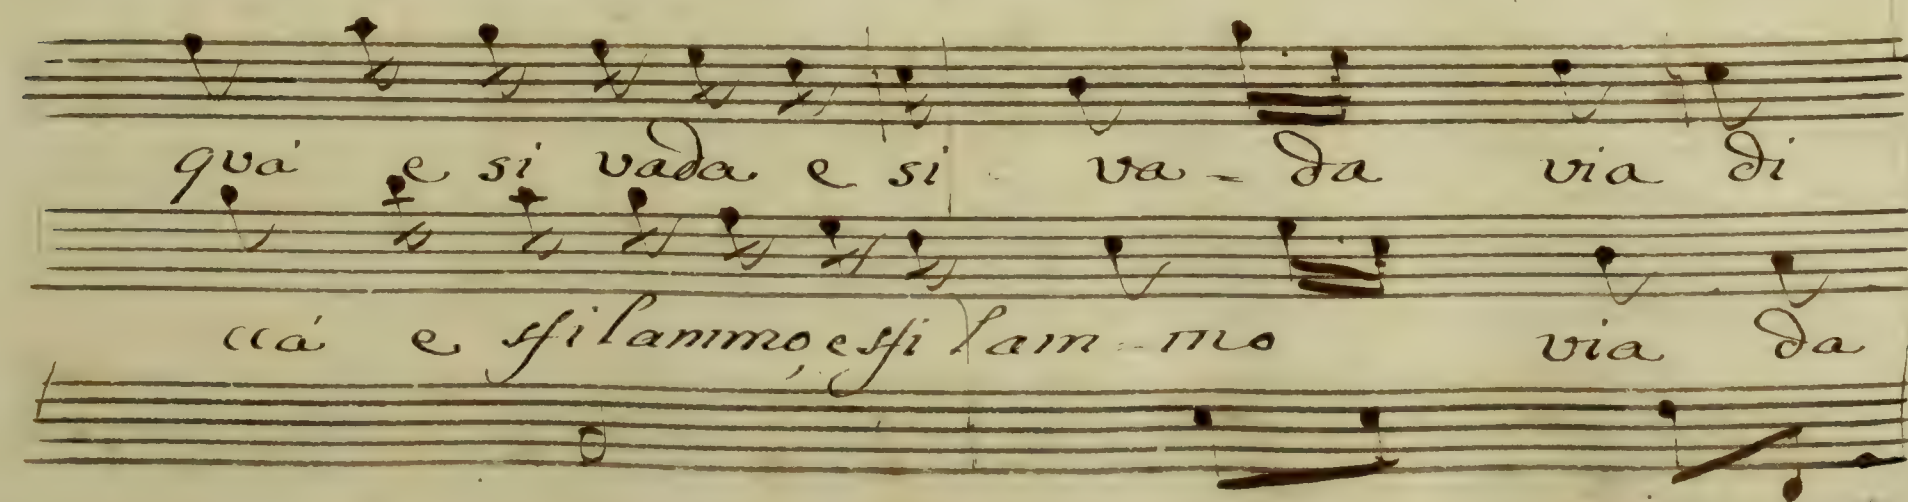 quà e si vada e si va - da via di
ccà e sfilammo, e sfilam - mo via da